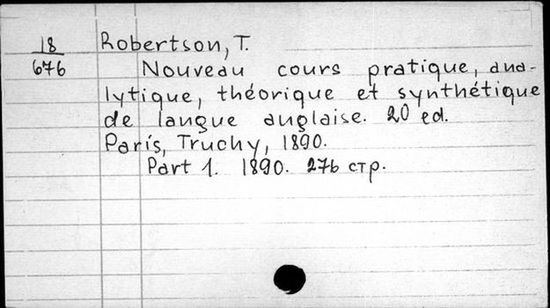 18
676
Robertson, T.
Nouveau cours pratique, ana-
lytique, théorique et synthétique
de langue anglaise. 20 ed.
Paris, Truchy, 1890.
Part 1. 1890. 276 стр.